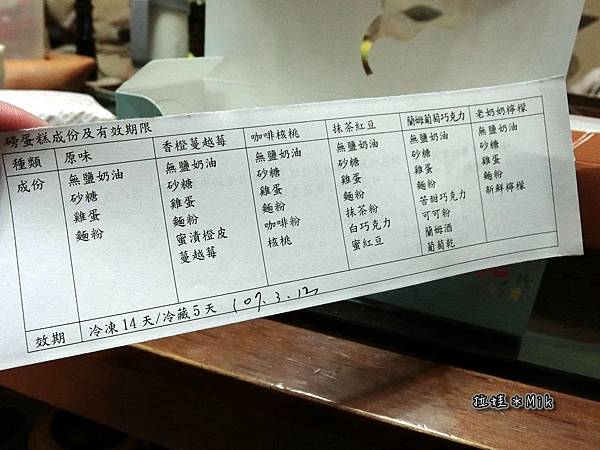 磅蛋糕成份及有效期限
種類 原味 香橙蔓越莓 咖啡核桃 抹茶紅豆 蘭姆葡萄巧克力 老奶奶檸檬
成份 無鹽奶油 無鹽奶油 無鹽奶油 無鹽奶油 無鹽奶油 無鹽奶油
砂糖 砂糖 砂糖 砂糖 砂糖 砂糖
雞蛋 雞蛋 雞蛋 雞蛋 雞蛋 雞蛋
麵粉 麵粉 麵粉 麵粉 麵粉 麵粉
蜜漬橙皮 咖啡粉 抹茶粉 苦甜巧克力 新鮮檸檬
蔓越莓 核桃 白巧克力 可可粉
蜜紅豆 蘭姆酒
葡萄乾
效期 冷凍14天/冷藏5天 107.3.12
拉娃＊Mik